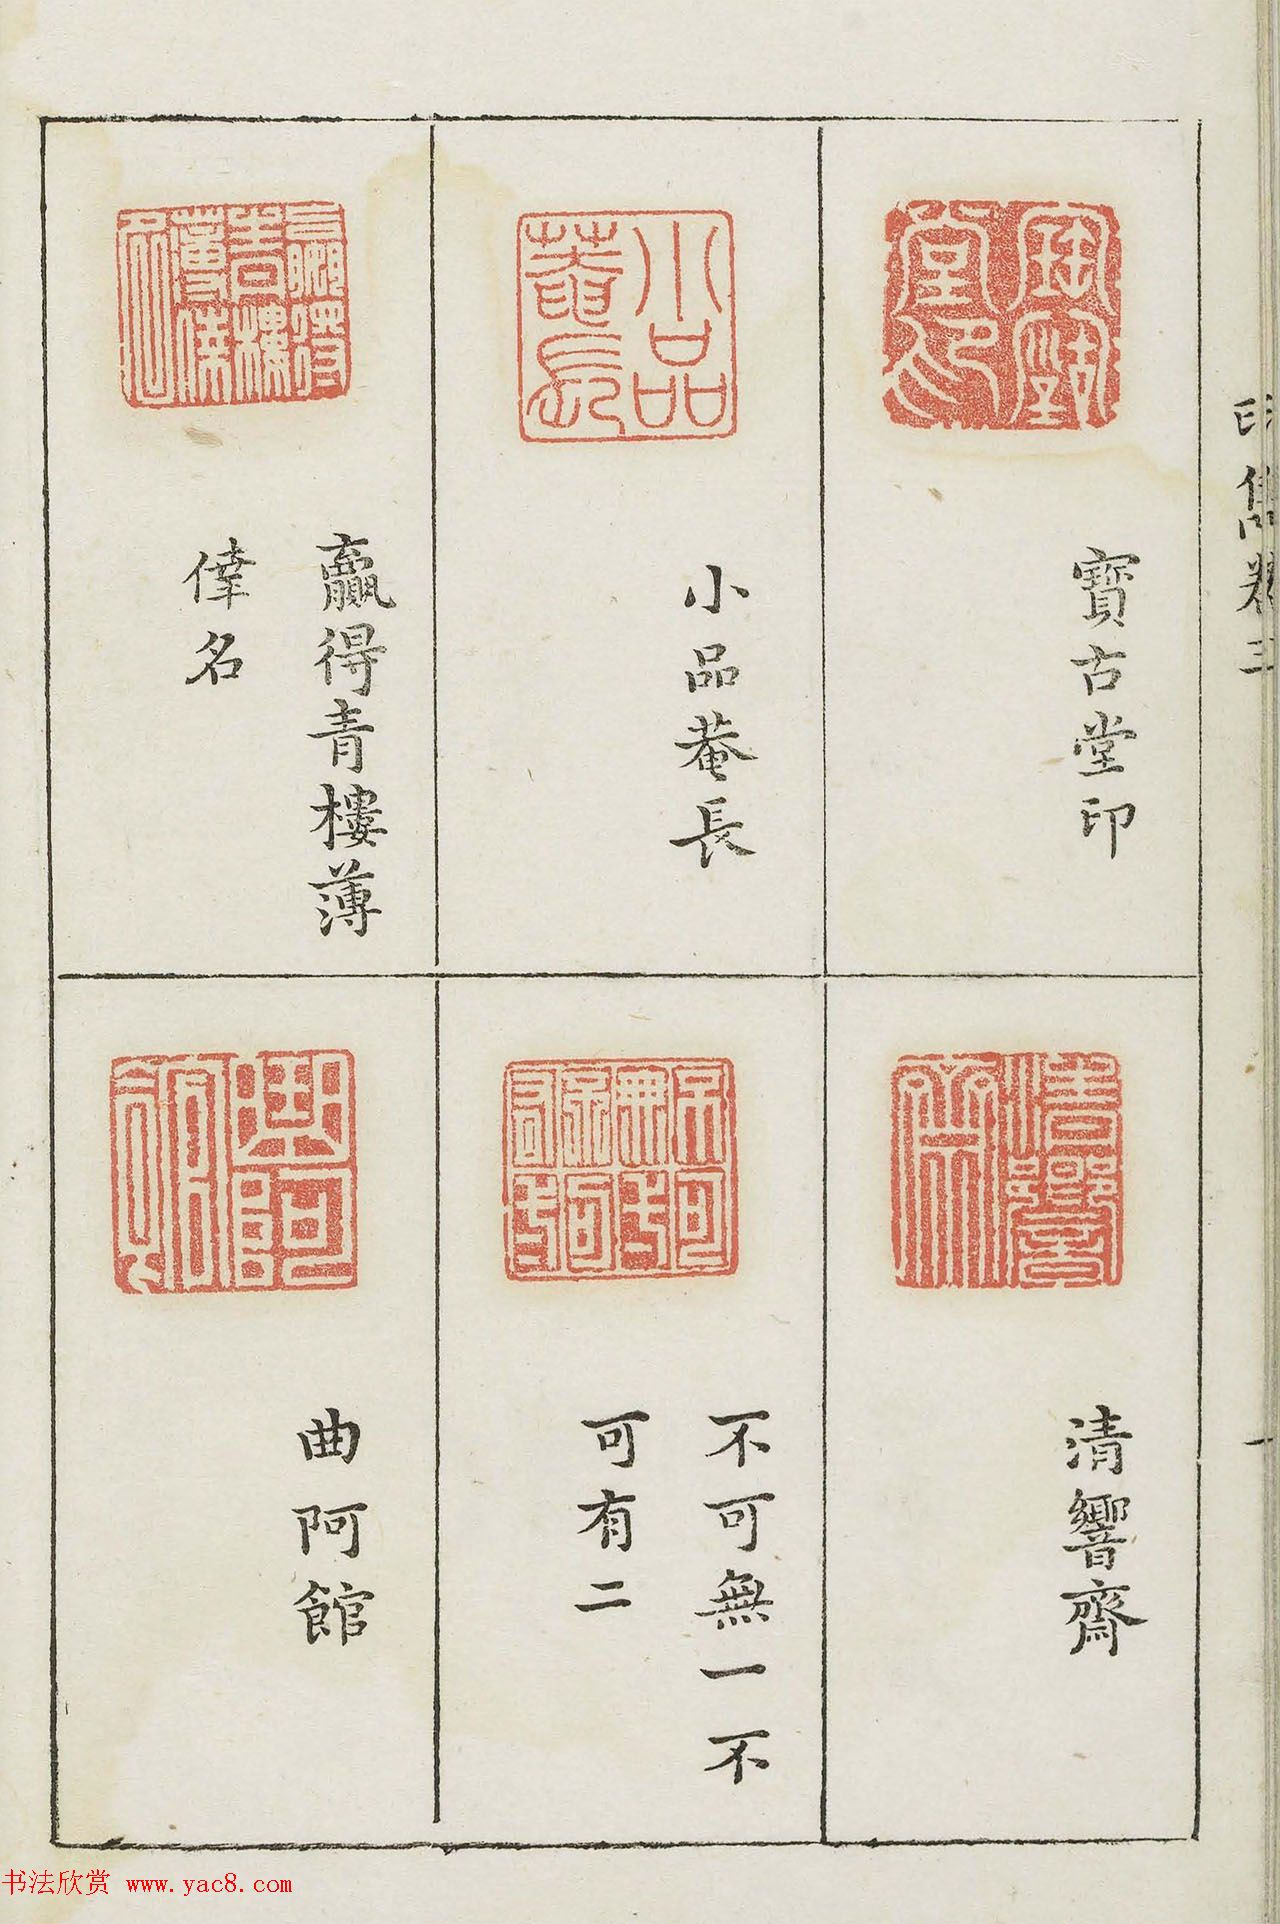 印雋卷三
一
寶古堂印
小品菴長
贏得青樓薄
倖名
清響齋
不可無一不
可有二
曲阿館
书法欣赏 www.yac8.com